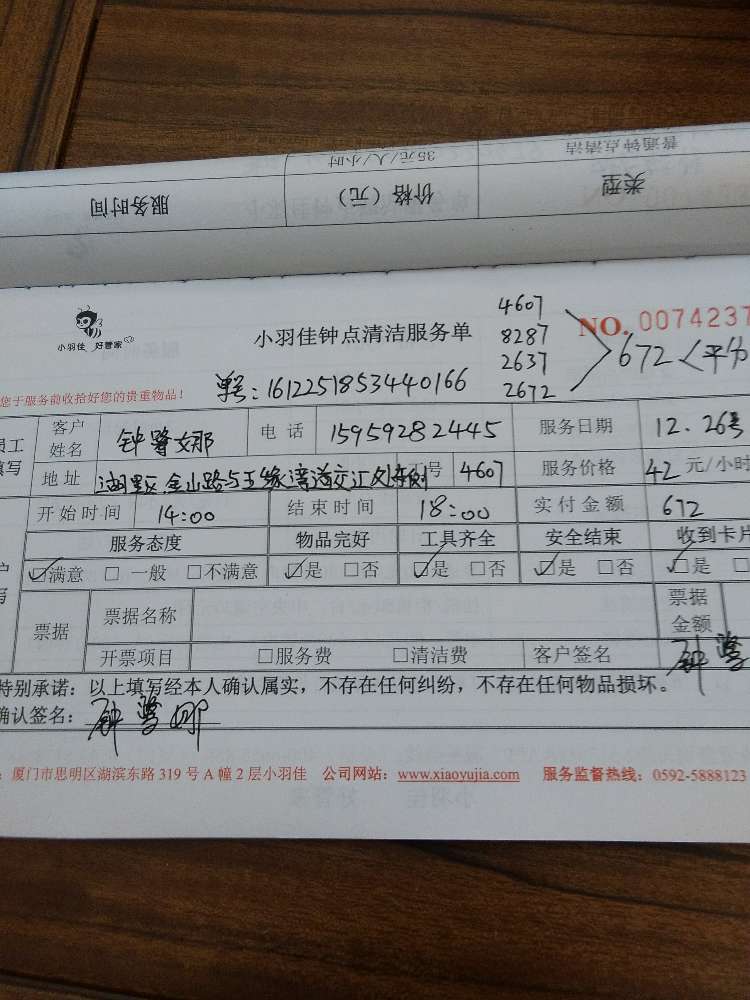 普通钟点清洁 35元/人/小时
类型 价格（元） 服务时间
小羽佳 好管家
小羽佳钟点清洁服务单
4607
8287
2637
2672
672<平分
NO. 0074237
您于服务前收拾好您的贵重物品！
单号：1612251853440166
员工 客户姓名 钟鹭娜 电话 15959282445 服务日期 12.26号
填写 地址 湖里区金山路与五缘湾道交汇处东侧 工号 4607 服务价格 42元/小时
开始时间 14:00 结束时间 18:00 实付金额 672
服务态度 物品完好 工具齐全 安全结束 收到卡片
☑满意 □一般 □不满意 ☑是 □否 ☑是 □否 ☑是 □否 ☑是 □
票据 票据名称 票据金额
开票项目 □服务费 □清洁费 客户签名 钟鹭
特别承诺：以上填写经本人确认属实，不存在任何纠纷，不存在任何物品损坏。
确认签名：钟鹭娜
：厦门市思明区湖滨东路 319 号 A 幢 2 层小羽佳 公司网站：www.xiaoyujia.com 服务监督热线：0592-5888123